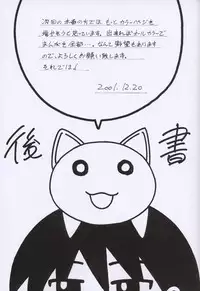 次回の本番の方では もっとカラーページを
増やそうと思っています。出来ればオールカラーで
まんがも全部…。なんて野望もありますの
で、よろしくお願い致します。
それでは♪
2001.12.20
後書